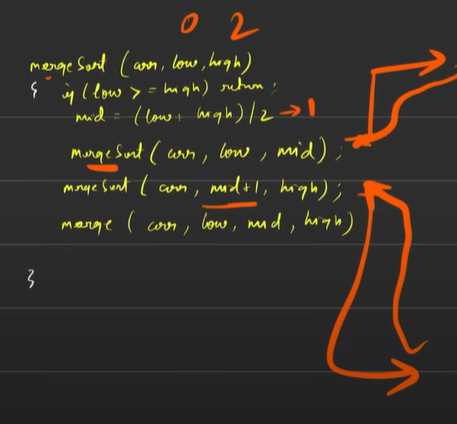 0 2
mergeSort (arr, low, high)
{ if (low >= high) return;
mid = (low + high)/2 → 1
mergeSort ( arr, low, mid);
mergeSort ( arr, mid+1, high);
merge ( arr, low, mid, high)
}